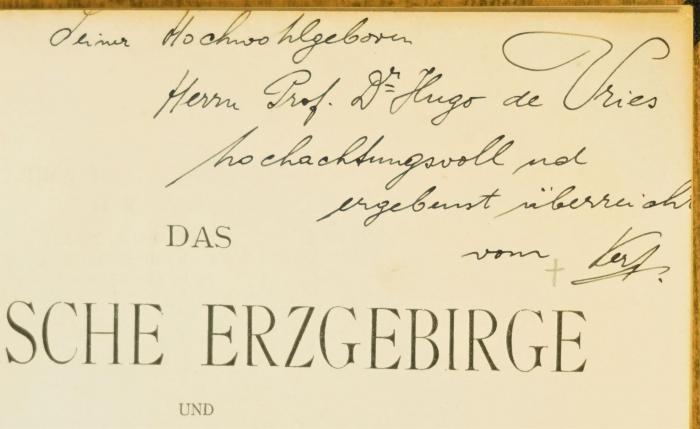 Seiner Hochwohlgeboren
Herrn Prof. Dr Hugo de Vries
hochachtungsvoll und
ergebenst überreicht
vom Verf.
DAS
SCHE ERZGEBIRGE
UND